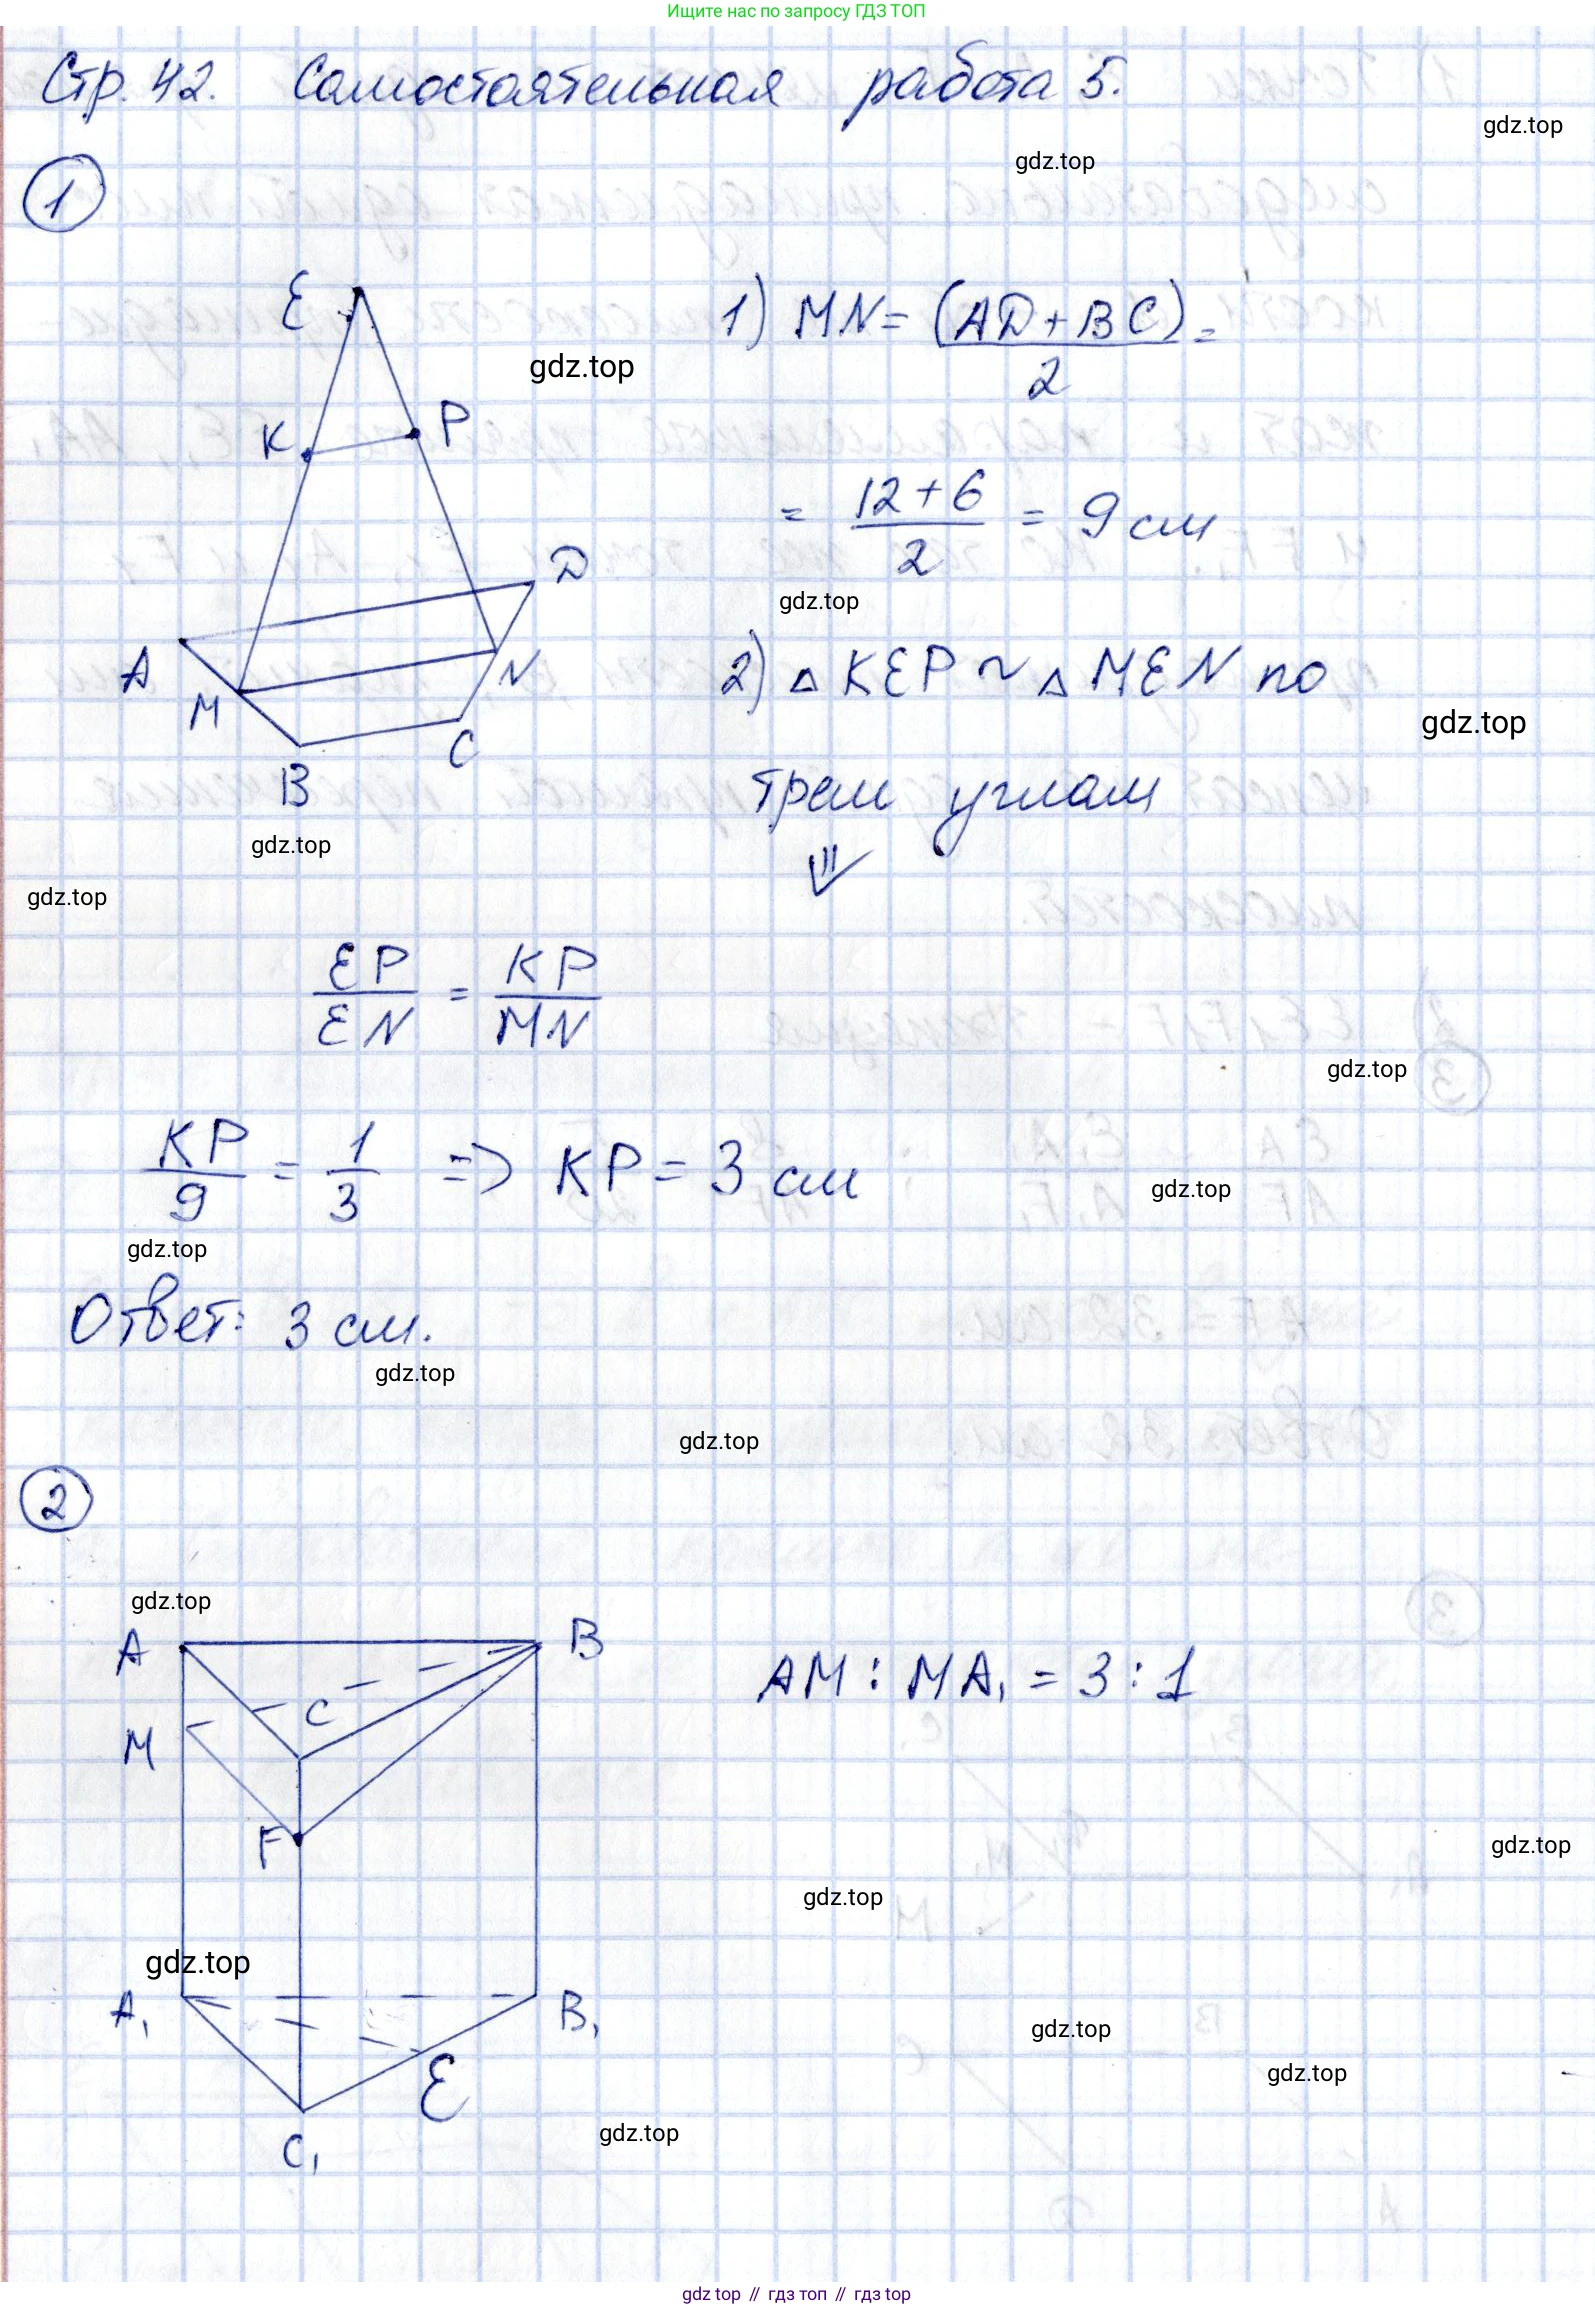 Ищите нас по запросу ГДЗ ТОП
Стр. 42. Самостоятельная работа 5.
gdz.top
gdz.top
1
E
K
P
A
D
M
N
B
C
gdz.top
1) MN = (AD + BC)/2 =
= (12 + 6)/2 = 9 см
gdz.top
2) △KEP ~ △MEN по
gdz.top
трем углам
⇓
gdz.top
gdz.top
EP/EN = KP/MN
gdz.top
KP/9 = 1/3 => KP = 3 см
gdz.top
gdz.top
Ответ: 3 см.
gdz.top
gdz.top
2
gdz.top
A
B
C
M
F
A₁
B₁
E
C₁
AM : MA₁ = 3 : 1
gdz.top
gdz.top
gdz.top
gdz.top
gdz.top
gdz.top
gdz top // гдз топ // гдз top